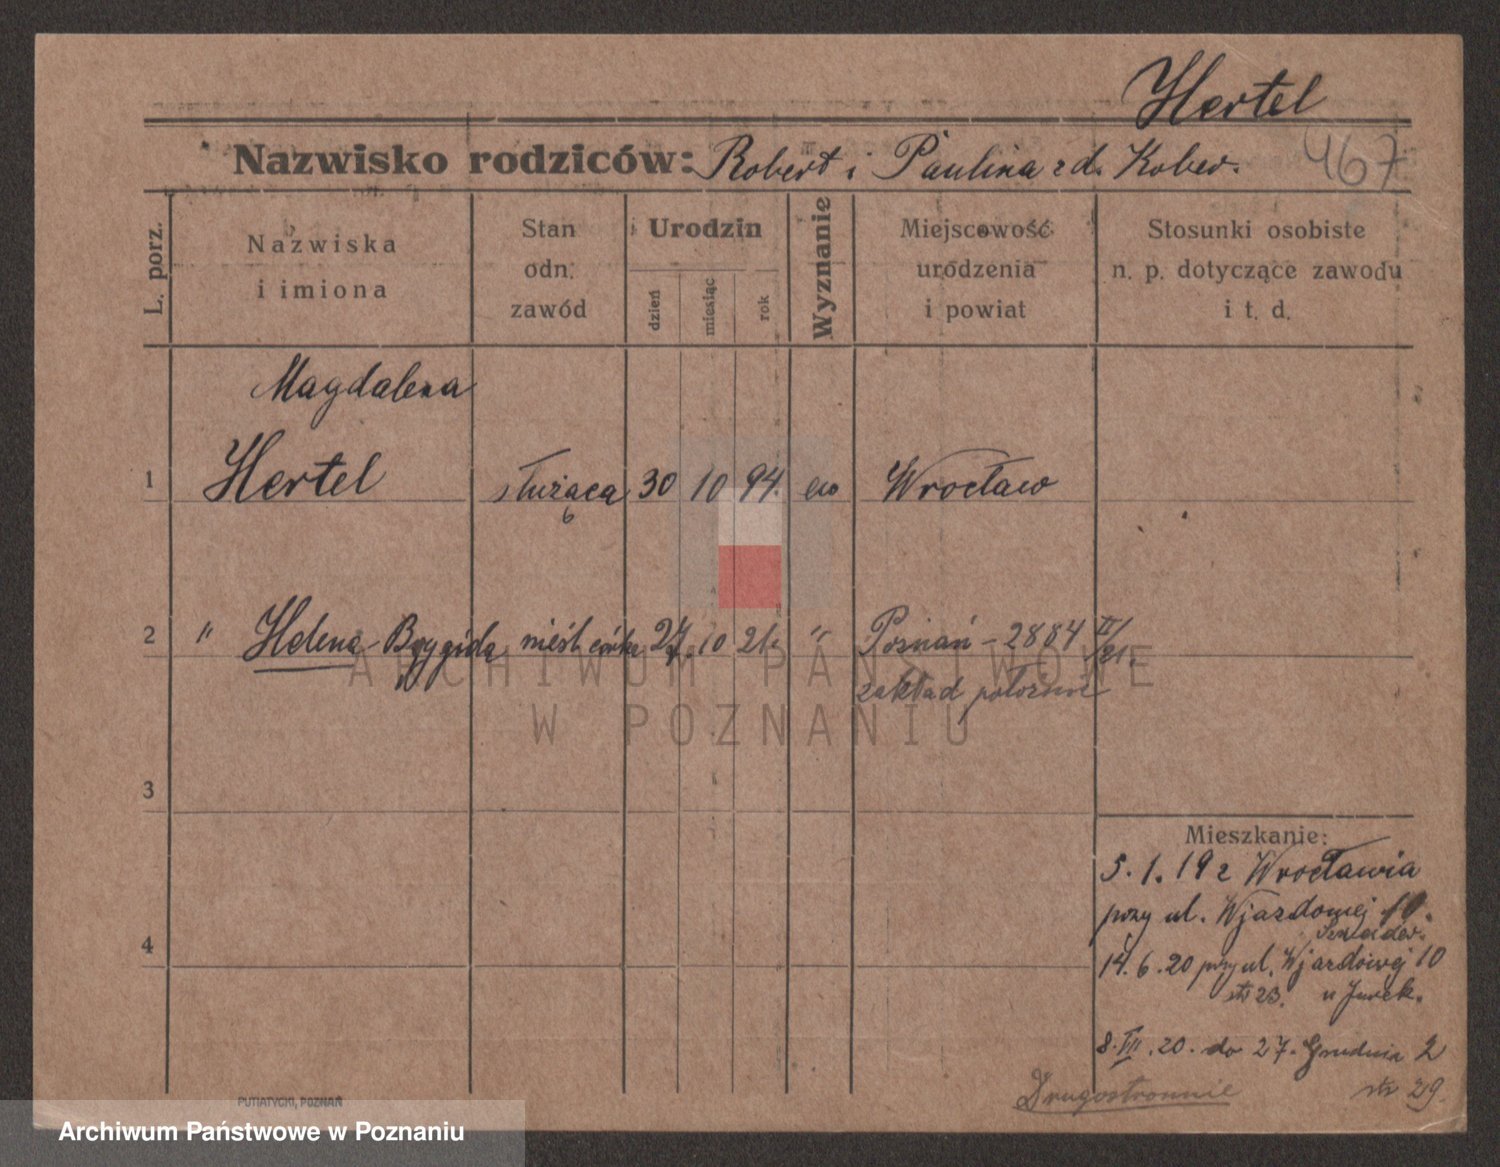 Hertel
467
Nazwisko rodziców: Robert i Paulina zd. Kober.
L. porz.
Nazwiska i imiona
Stan odn. zawód
Urodzin
dzień
miesiąc
rok
Wyznanie
Miejscowość urodzenia i powiat
Stosunki osobiste n. p. dotyczące zawodu i t. d.
Magdalena
1 Hertel służąca 30 10 94. ew Wrocław
2 " Helena Brygida nieśl. córka 27. 10 21. " Poznań - 2884 II/21.
zakład położne
3
4
Mieszkanie:
5. 1. 19 z Wrocławia
przy ul. Wjazdowej 10.
14. 6. 20 przy ul. Wjazdowej 10
str 23. u Jurek.
8. VII. 20. do 27. Grudnia 2
str 29.
Drugostronnie
PUTIATYCKI, POZNAŃ
ARCHIWUM PAŃSTWOWE
W POZNANIU
Archiwum Państwowe w Poznaniu